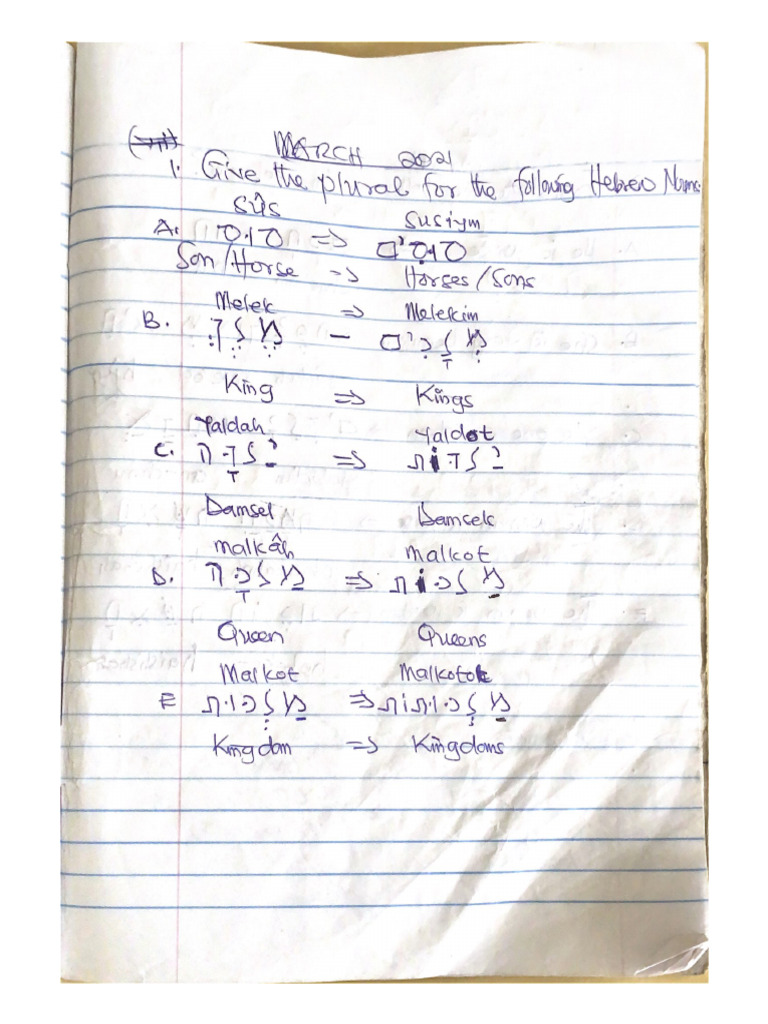 MARCH 2021
1. Give the plural for the following Hebrew Nouns
sûs Susiym
A. סוּס => סוּסִים
Son/Horse -> Horses/Sons
Melek => Melekim
B. מֶלֶךְ - מְלָכִים
King => Kings
Yaldah Yaldot
C. יַלְדָּה => יַלְדּוֹת
Damsel Damsels
malkâh malkot
D. מַלְכָּה => מַלְכּוֹת
Queen Queens
Malkot Malkotot
E מַלְכּוּת => מַלְכֻיּוֹת
Kingdom => Kingdoms